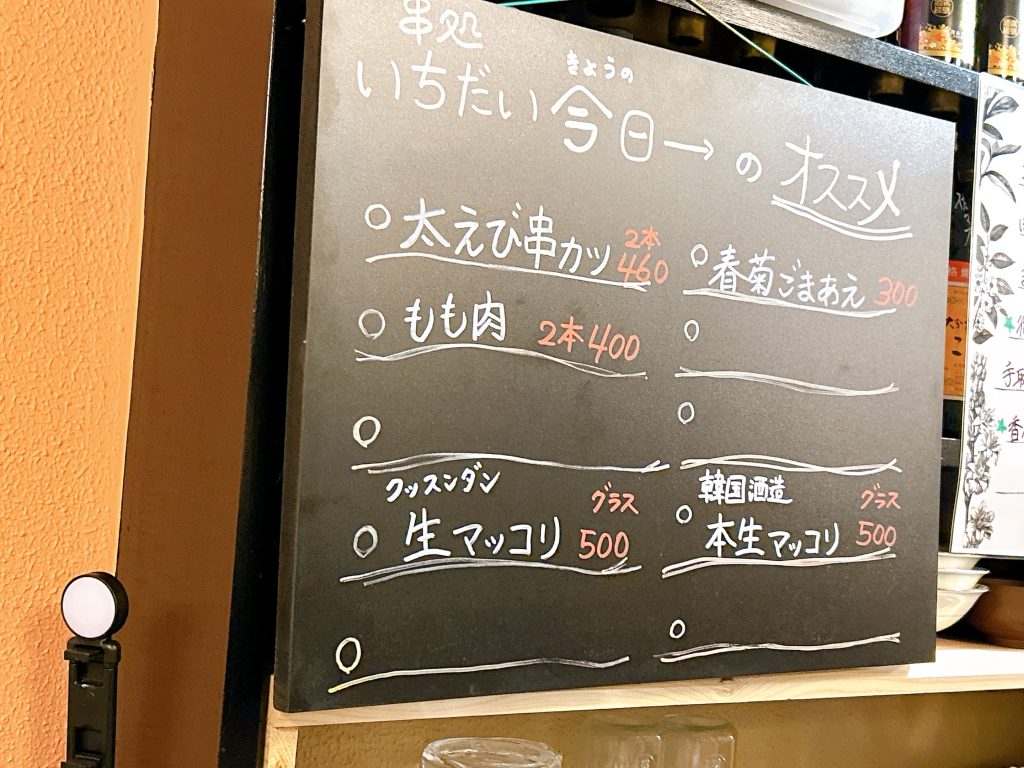 串処
いちだい
きょうの
今日→のオススメ
○太えび串カツ 2本 460
○もも肉 2本400
○
クッスンダン
○生マッコリ グラス 500
○
○春菊ごまあえ 300
○
○
韓国酒造
○本生マッコリ グラス 500
○